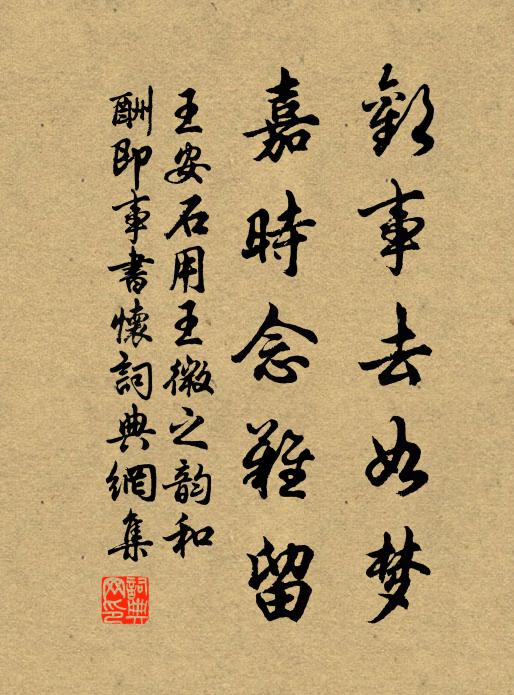 歡事去如梦
嘉時念難留
王安石用王微之韵和
酬即事書懷詞典網集
詞典
网印